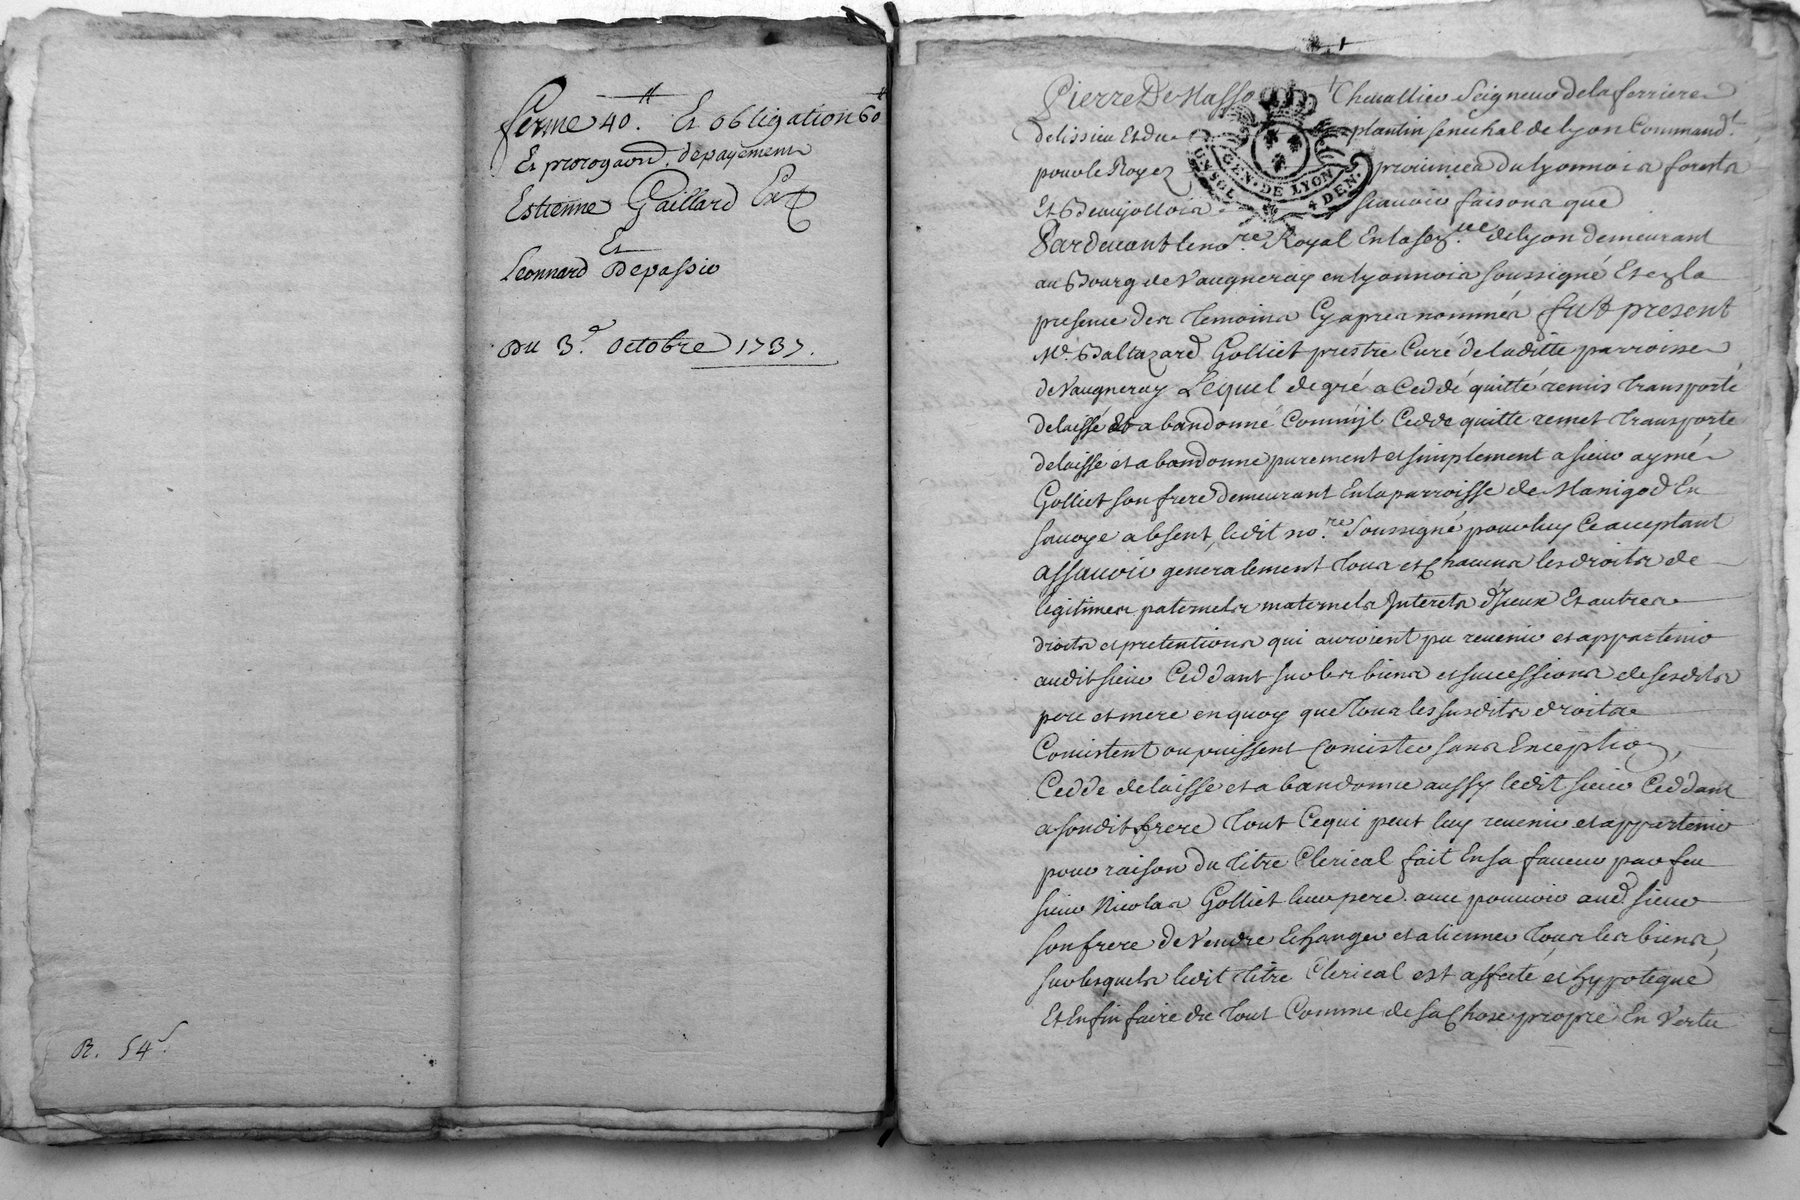 ferme 40.tt Et obligation 60tt
Et prorogaon. de payement
Estienne Gaillard
Et
Leonnard Depassio
Du 3.e Octobre 1737.
R. 54 s.
Pierre De Masso Chevallier Seigneur de la ferriere
de lissieu Et du plantin senechal de lyon Command.t
pour le Roy ez provinces du lyonnois forests
Et Beaujollois scavoir faisons que
GEN. DE LYON
Pardevant le no.re Royal En la sen.ée de lyon demeurant
au Bourg de Vaugneray en lyonnois soussigné Et en la
presence des temoins Cy apres nommés fut present
Mr. Baltazard Golliet prestre Curé de laditte parroisse
de Vaugneray Lequel de gré a Ceddé quitté remis transporté
delaissé Et abandonné Comm'jl Cedde quitte remet transporte
delaisse et abandonne purement et simplement a sieur aymé
Golliet son frere demeurant En la parroisse de Manigod En
savoye absent, ledit no.re soussigné pour luy Ce acceptant
assavoir generalement tous et Chacuns les droits de
legitimes paternels maternels Interets d'Jceux Et autres
droits et pretentions qui auroient pu revenir et appartenir
audit sieur Ceddant sur les biens et successions de sesdits
pere et mere en quoy que tous les susdits droits
Consistent ou puissent Consister sans Exception,
Cedde delaisse et abandonne aussy ledit sieur Ceddant
a sondit frere tout Ce qui peut luy revenir et appartenir
pour raison du titre Clerical fait En sa faveur par feu
sieur Nicolas Golliet leur pere. avec pouvoir aud. sieur
son frere de Vendre Echanger et alienner tous les biens
sur lesquels ledit titre Clerical est affecté et hypotequé
Et Enfin faire du tout Comme de sa Chose propre En Vertu